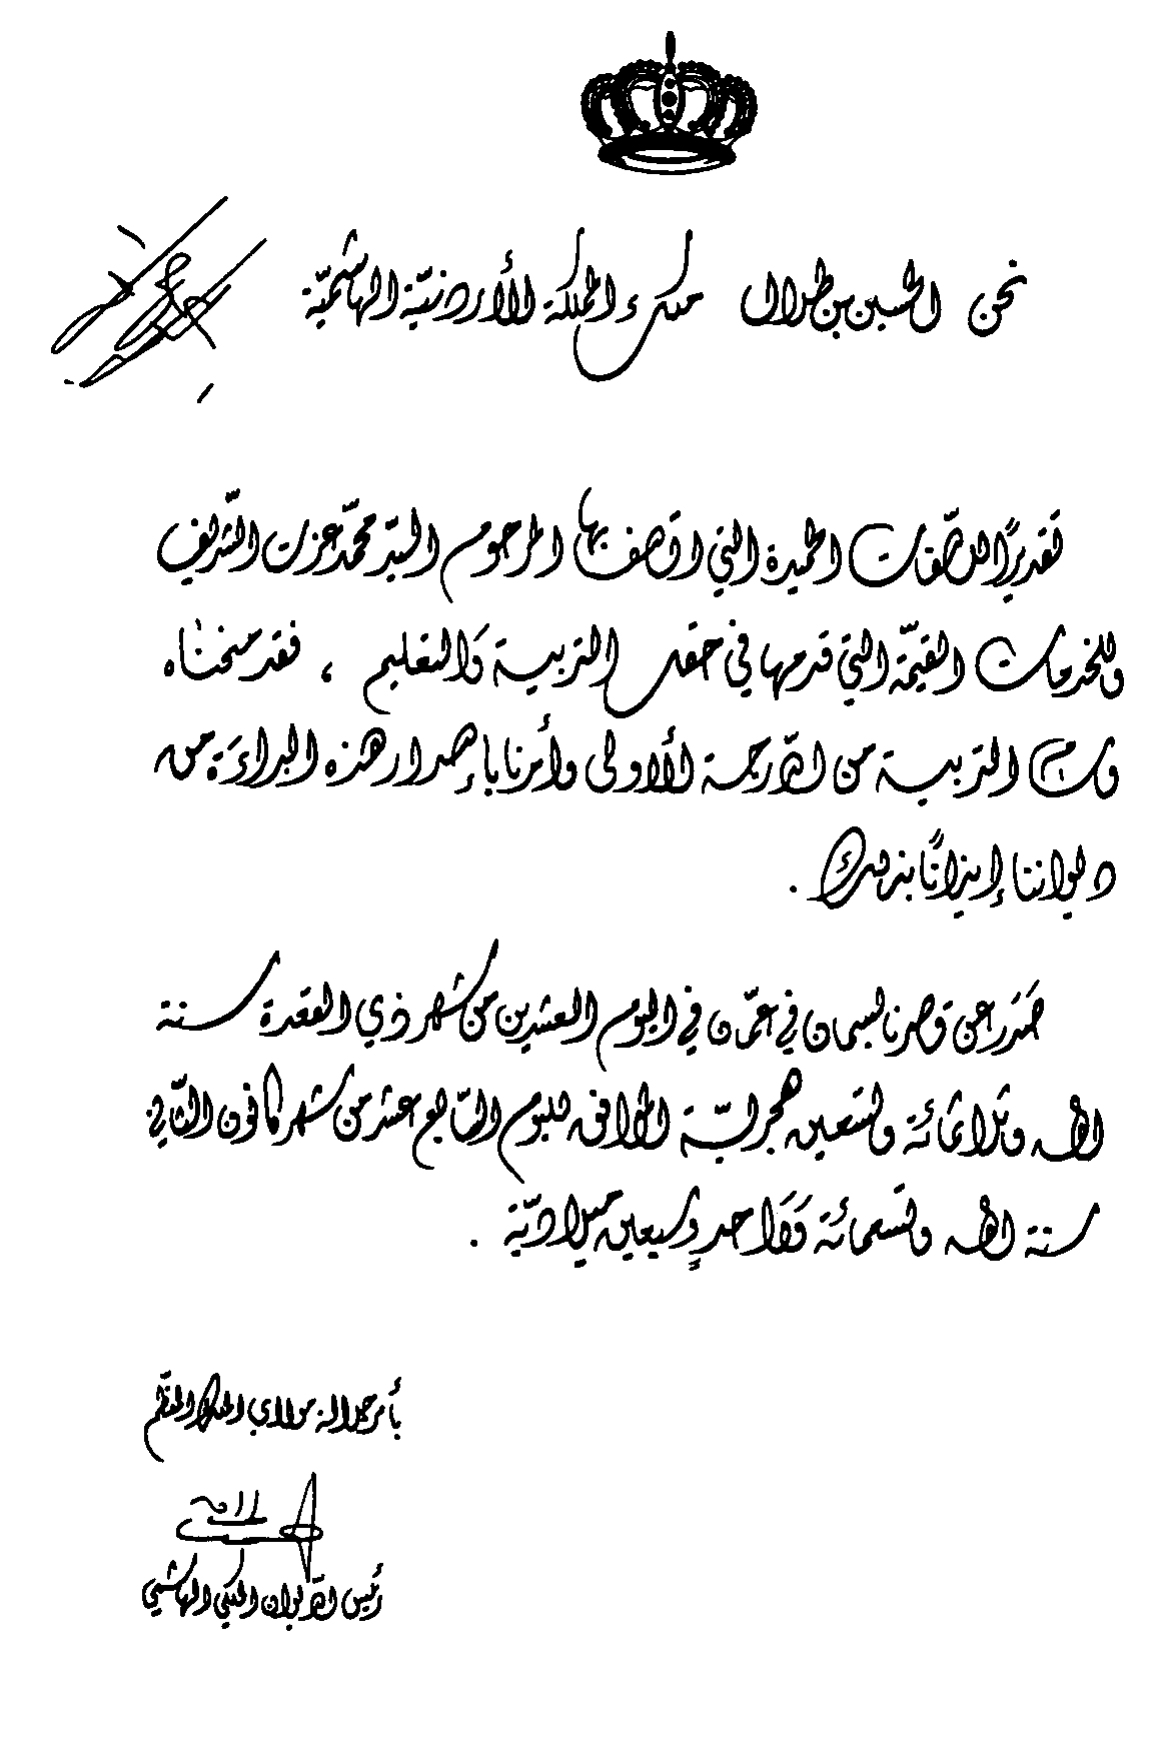 نحن الحسين بن طلال ملك المملكة الأردنيّة الهاشميّة
تقديرًا للصّفات الحميدة التي اتصف بها المرحوم السيّد محمّد عزت الشّريف
وللخدمات القيّمة التي قدمها في حقل التربية وَالتعليم ، فقد منحناه
وسام التربية من الدّرجة الأولى وأمرنا بإصدار هذه البراءَة من
ديواننا إيذانًا بذلك .
صَدَر عن قصرنا بسمان في عمّان في اليوم العشرين من شهر ذي القعدة سنة
الف وثلاثمائة وتسعين هجريّة الموافق لليوم السّابع عشر من شهر كانون الثّاني
سنة الف وتسعمائة وَوَاحدٍ وسبعين ميلاديّة .
بأمر جلالة مولاي الملك المعظّم
رئيس الدّيوان الملكي الهاشمي